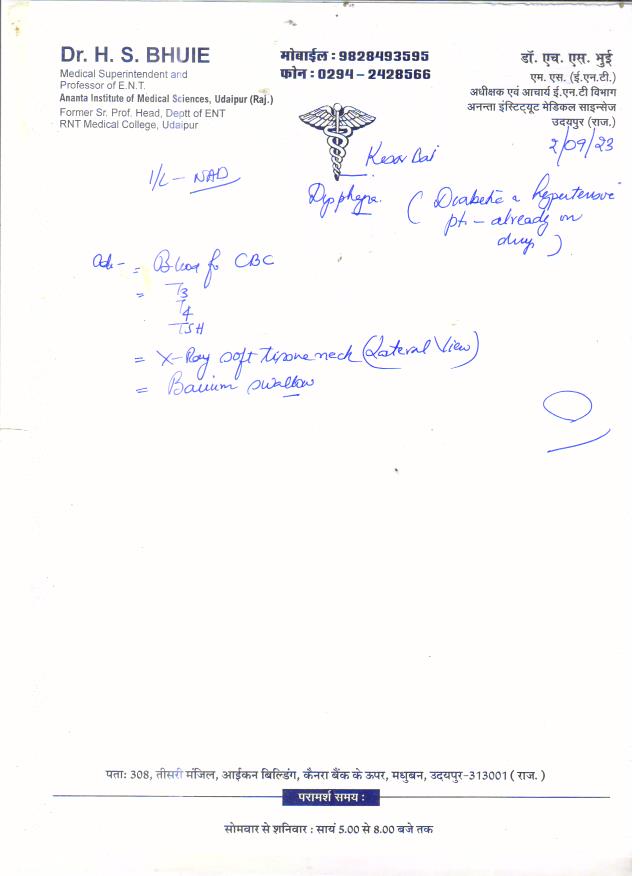 Dr. H. S. BHUIE
Medical Superintendent and
Professor of E.N.T.
Ananta Institute of Medical Sciences, Udaipur (Raj.)
Former Sr. Prof. Head, Deptt of ENT
RNT Medical College, Udaipur
मोबाईल : 9828493595
फोन : 0294 – 2428566
डॉ. एच. एस. भुई
एम. एस. (ई.एन.टी.)
अधीक्षक एवं आचार्य ई.एन.टी विभाग
अनन्ता इंस्टिट्यूट मेडिकल साइन्सेज
उदयपुर (राज.)
2/09/23
Kesar Bai
I/L – NAD
Dysphagia. (Diabetic & hypertensive
pt. – already on
drug)
Adv – = Blood for CBC
= T3
T4
TSH
= X-Ray soft tissue neck (Lateral View)
= Barium swallow
पता: 308, तीसरी मंजिल, आईकन बिल्डिंग, कैनरा बैंक के ऊपर, मधुबन, उदयपुर-313001 ( राज. )
परामर्श समय :
सोमवार से शनिवार : सायं 5.00 से 8.00 बजे तक